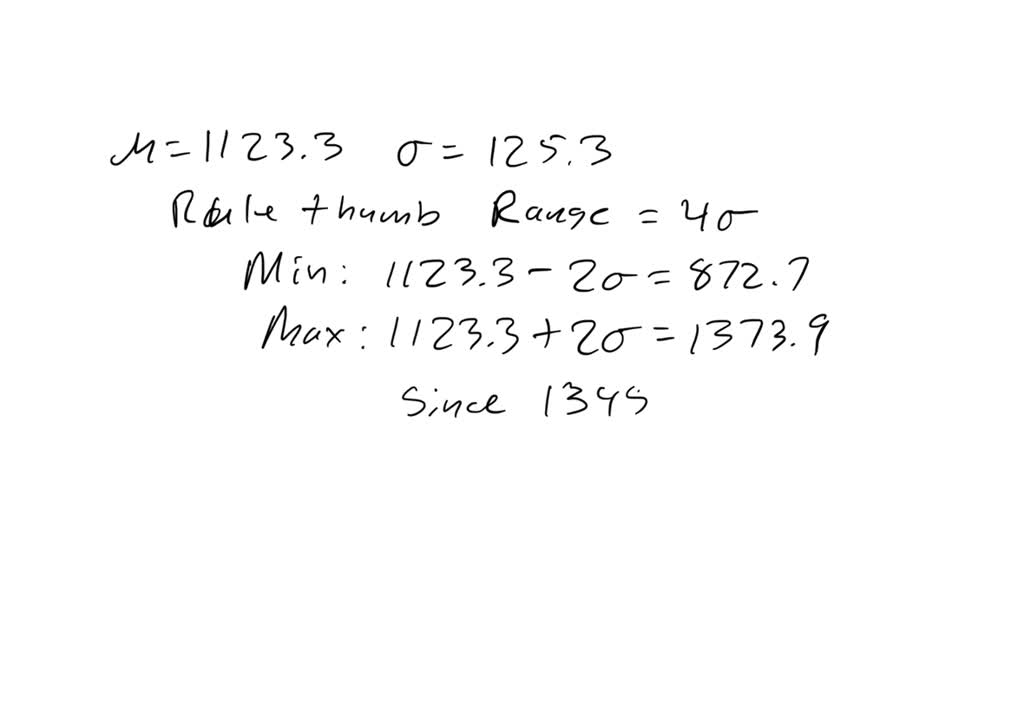 μ = 1123.3 σ = 125.3
Rule thumb Range = 4σ
Min: 1123.3 - 2σ = 872.7
Max: 1123.3 + 2σ = 1373.9
Since 1345